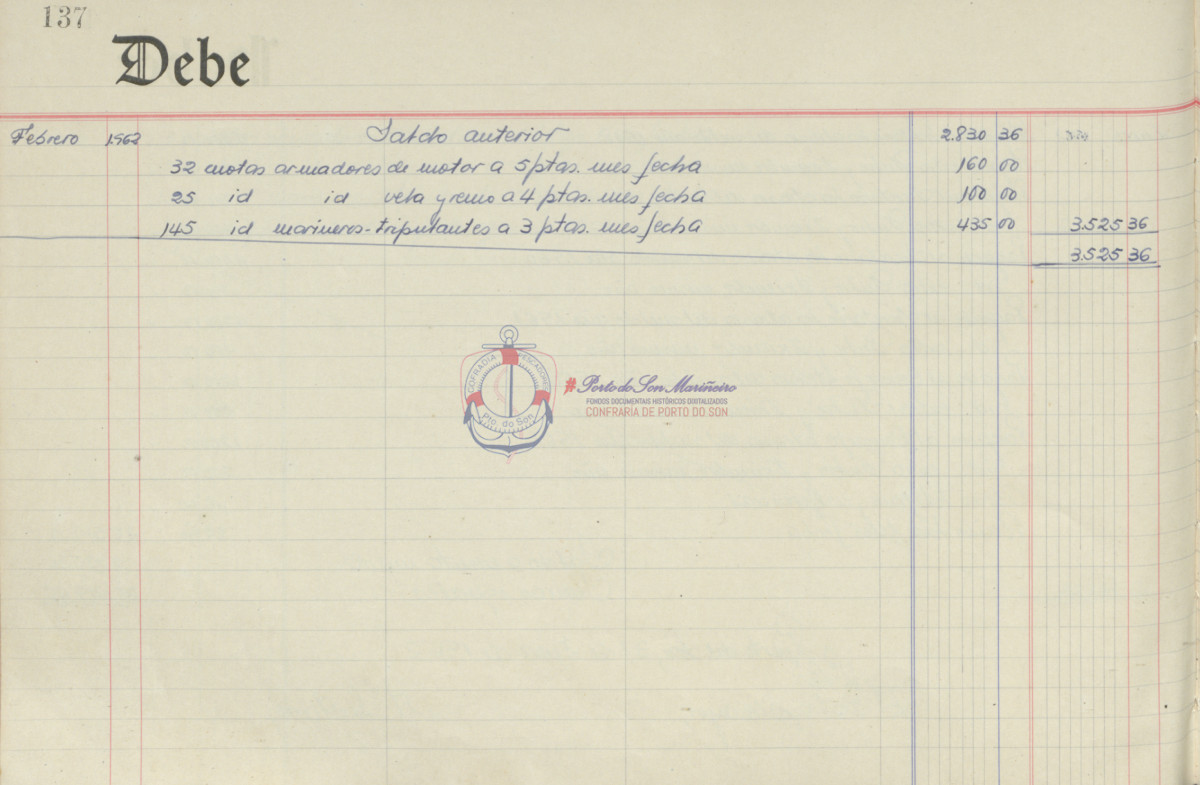 137
Debe
Febrero 1962 Saldo anterior 2.830 36
32 cuotas armadores de motor a 5 ptas. mes fecha 160 00
25 id id vela y remo a 4 ptas. mes fecha 100 00
145 id marineros-tripulantes a 3 ptas. mes fecha 435 00 3.525 36
3.525 36
COFRADIA PESCADORES
Pto. do Son
#Porto do Son Mariñeiro
FONDOS DOCUMENTAIS HISTÓRICOS DIXITALIZADOS
CONFRARÍA DE PORTO DO SON